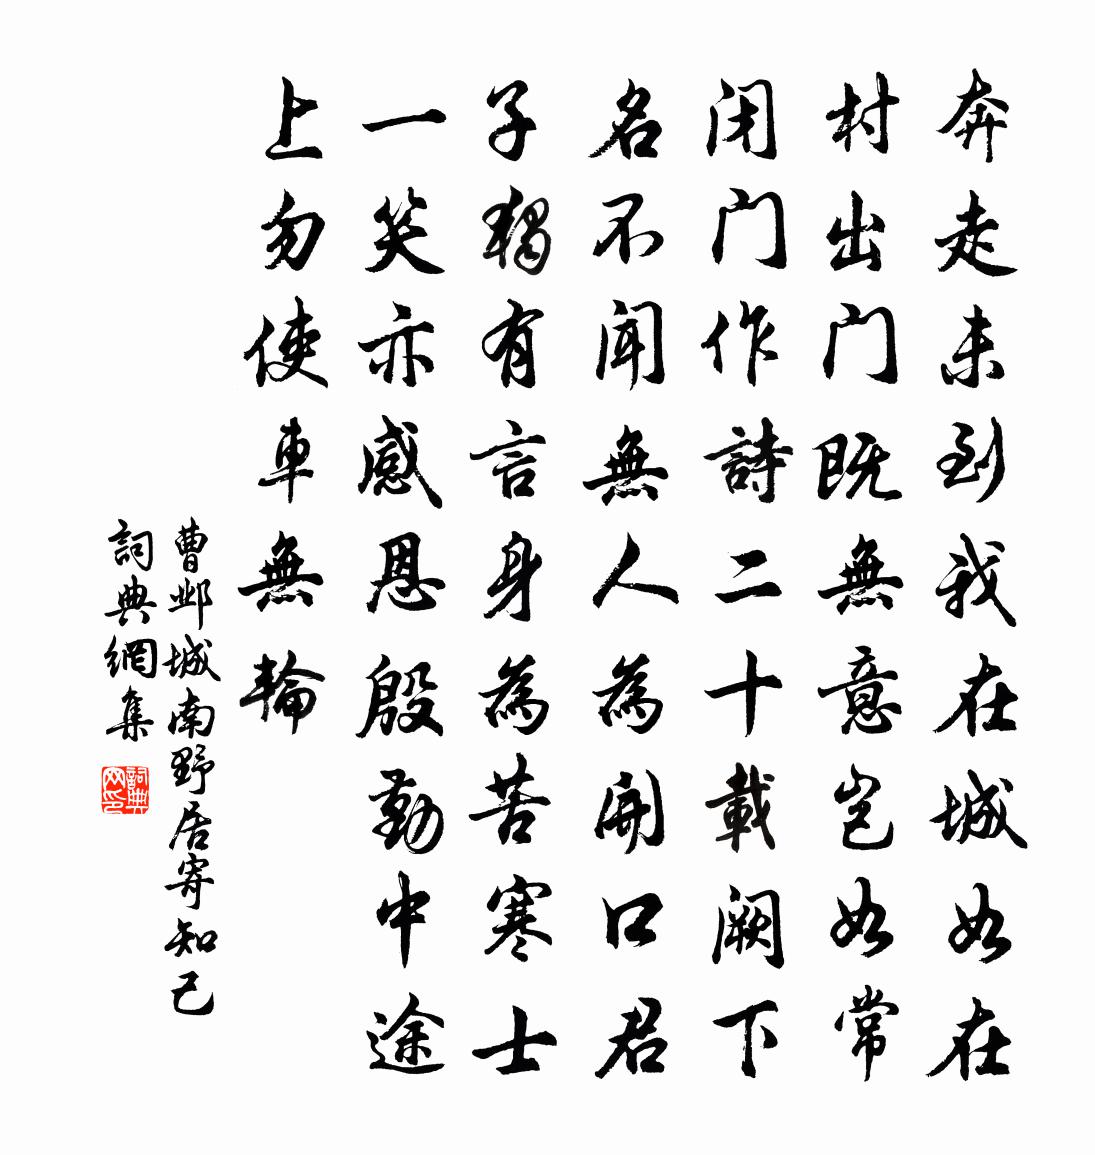 奔走未到我在城如在
村出门既無意岂如常
闭门作詩二十載阙下
名不闻無人為開口君
子獨有言身為苦寒士
一笑亦感恩殷勤中途
上勿使車無輪
曹邺城南野居寄知己
詞典網集
詞典网印